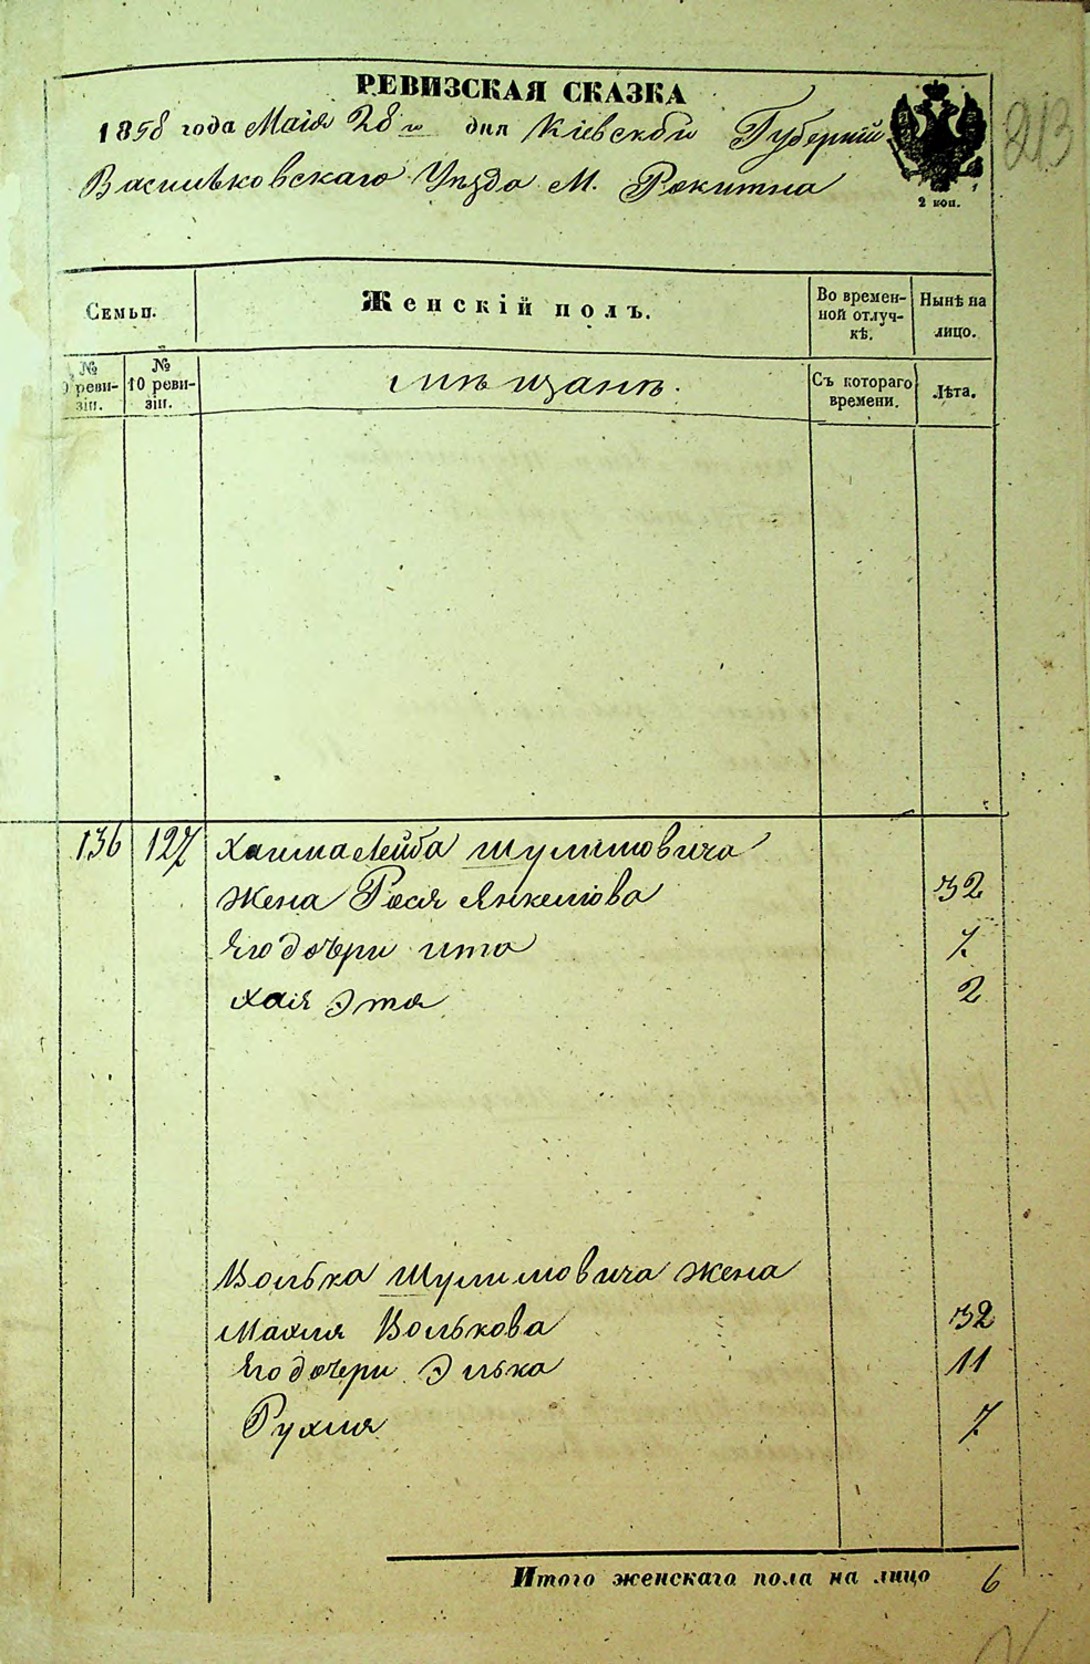 РЕВИЗСКАЯ СКАЗКА
1858 года Маія 28 го дня Кіевской Губерніи
213
Васильковскаго Уѣзда М. Рокитна
2 коп.
Семьи.
Женскій полъ.
Во времен-
ной отлуч-
кѣ.
Ныні на
лицо.
№
реви-
зіи.
№
10 реви-
зіи.
мѣщанѣ.
Съ котораго
времени.
Лѣта.
136 127 Хаима Лейба Шулимовича
жена Рося Янкелiова 32
Его дочери Ита 7
Хая Эта 2
Волька Шулимовича жена
Махля Волькова 32
Его дочери Элька 11
Рухля 7
Итого женскаго пола на лицо 6